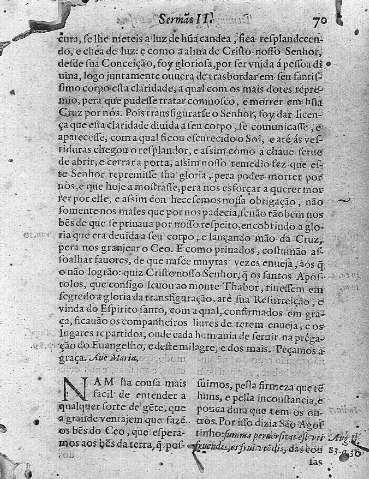 Sermão II. 70
cura, se lhe meteis a luz de hũa candea, fica resplandecen-
do, e chea de luz: e como a alma de Cristo nosso Senhor,
desde sua Conceição, foy gloriosa, por ser vnida á pessoa di
uina, logo juntamente ouuera de trasbordar em seu santis-
simo corpo esta claridade, a qual com os mais dotes repre-
mio, pera que pudesse tratar comnosco, e morrer em hũa
Cruz por nós. Pois transfigurarse o Senhor, foy dar licen-
ça que esta claridade diuida a seu corpo, se comunicasse, e
aparecesse, com a qual ficou escurecido Sol, e até ás ves-
tiduras chegou o resplandor, e assim como a chaue serue
de abrir, e cerrar a porta, assim nosso remedio fez que es-
te Senhor repremisse sua gloria, pera poder morrer por
nós, e que hoje a mostrasse, pera nos esforçar a querer mor
rer por elle, e assim conhecessemos nossa obrigação, não
somente nos males que por nos padecia, senão tãobem nos
bẽs de que se priuaua por nosso respeito, encobrindo a glo-
ria que era deuida a seu corpo, e lançando mão da Cruz,
pera nos granjear o Ceo. E como priuados, costumão as-
soalhar fauores, de que nasce muytas vezes enueja, aos q̃
o não logrão: quiz Cristo nosso Senhor, q̃ os santos Apos-
tolos, que consigo leuou ao monte Thabor, tiuessem em
segredo a gloria da transfiguração, até sua Resurreição, e
vinda do Espirito santo, com a qual, confirmados em gra-
ça, ficauão os companheiros liures de terem enueja, e os
lugares repartidos, onde cada hum auia de seruir na préga-
ção do Euangelho, e deste milagre, e dos mais. Peçamos a
graça. Aue Maria.
NAM ha cousa mais
facil de entender a
qualquer sorte de gẽte, que
a grande ventajem que fazẽ
os bẽs do Ceo, que espera-
mos aos bẽs da terra, q̃ pos-
suimos, pella firmeza que tẽ
huns, e pella inconstancia, e
pouca dura que tem os ou-
tros. Por isso dizia São Agos
tinho: summa peruersitas est vti
fruendis, et frui vtẽdis, das cou
sas
Aug. l.
83. q. 30